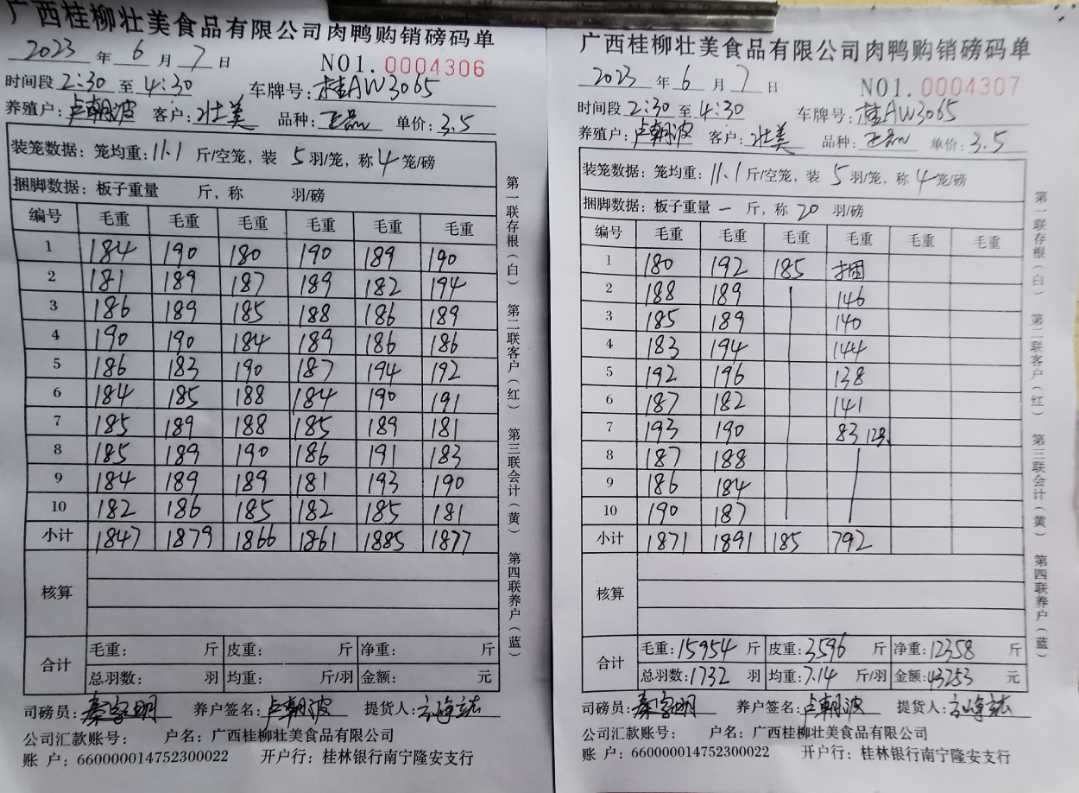 广西桂柳壮美食品有限公司肉鸭购销磅码单
2023 年 6 月 7 日 NO1. 0004306
时间段 2:30 至 4:30 车牌号: 桂AW3065
养殖户: 卢朝波 客户: 壮美 品种: 单价: 3.5
装笼数据: 笼均重: 11.1 斤/空笼, 装 5 羽/笼, 称 4 笼/磅
捆脚数据: 板子重量 斤, 称 羽/磅
编号 毛重 毛重 毛重 毛重 毛重 毛重
1 184 190 180 190 189 190
2 181 189 187 189 182 194
3 186 189 185 188 186 189
4 190 190 184 189 186 186
5 186 183 190 187 194 192
6 184 185 188 184 190 191
7 185 189 188 185 189 181
8 185 189 190 186 191 183
9 184 189 189 181 193 190
10 182 186 185 182 185 181
小计 1847 1879 1866 1861 1885 1877
核算
合计 毛重: 斤 皮重: 斤 净重: 斤
总羽数: 羽 均重: 斤/羽 金额: 元
司磅员: 养户签名: 卢朝波 提货人:
公司汇款账号: 户名: 广西桂柳壮美食品有限公司
账 户: 660000014752300022 开户行: 桂林银行南宁隆安支行
第一联存根(白) 第二联客户(红) 第三联会计(黄) 第四联养户(蓝)
广西桂柳壮美食品有限公司肉鸭购销磅码单
2023 年 6 月 7 日 NO1. 0004307
时间段 2:30 至 4:30 车牌号: 桂AW3065
养殖户: 卢朝波 客户: 壮美 品种: 单价: 3.5
装笼数据: 笼均重: 11.1 斤/空笼, 装 5 羽/笼, 称 4 笼/磅
捆脚数据: 板子重量 一 斤, 称 20 羽/磅
编号 毛重 毛重 毛重 毛重 毛重 毛重
1 180 192 185 捆
2 188 189 146
3 185 189 140
4 183 194 144
5 192 196 138
6 187 182 141
7 193 190 83 12只
8 187 188
9 186 184
10 190 187
小计 1871 1891 185 792
核算
合计 毛重: 15954 斤 皮重: 3596 斤 净重: 12358 斤
总羽数: 1732 羽 均重: 7.14 斤/羽 金额: 43253 元
司磅员: 养户签名: 卢朝波 提货人:
公司汇款账号: 户名: 广西桂柳壮美食品有限公司
账 户: 660000014752300022 开户行: 桂林银行南宁隆安支行
第一联存根(白) 第二联客户(红) 第三联会计(黄) 第四联养户(蓝)